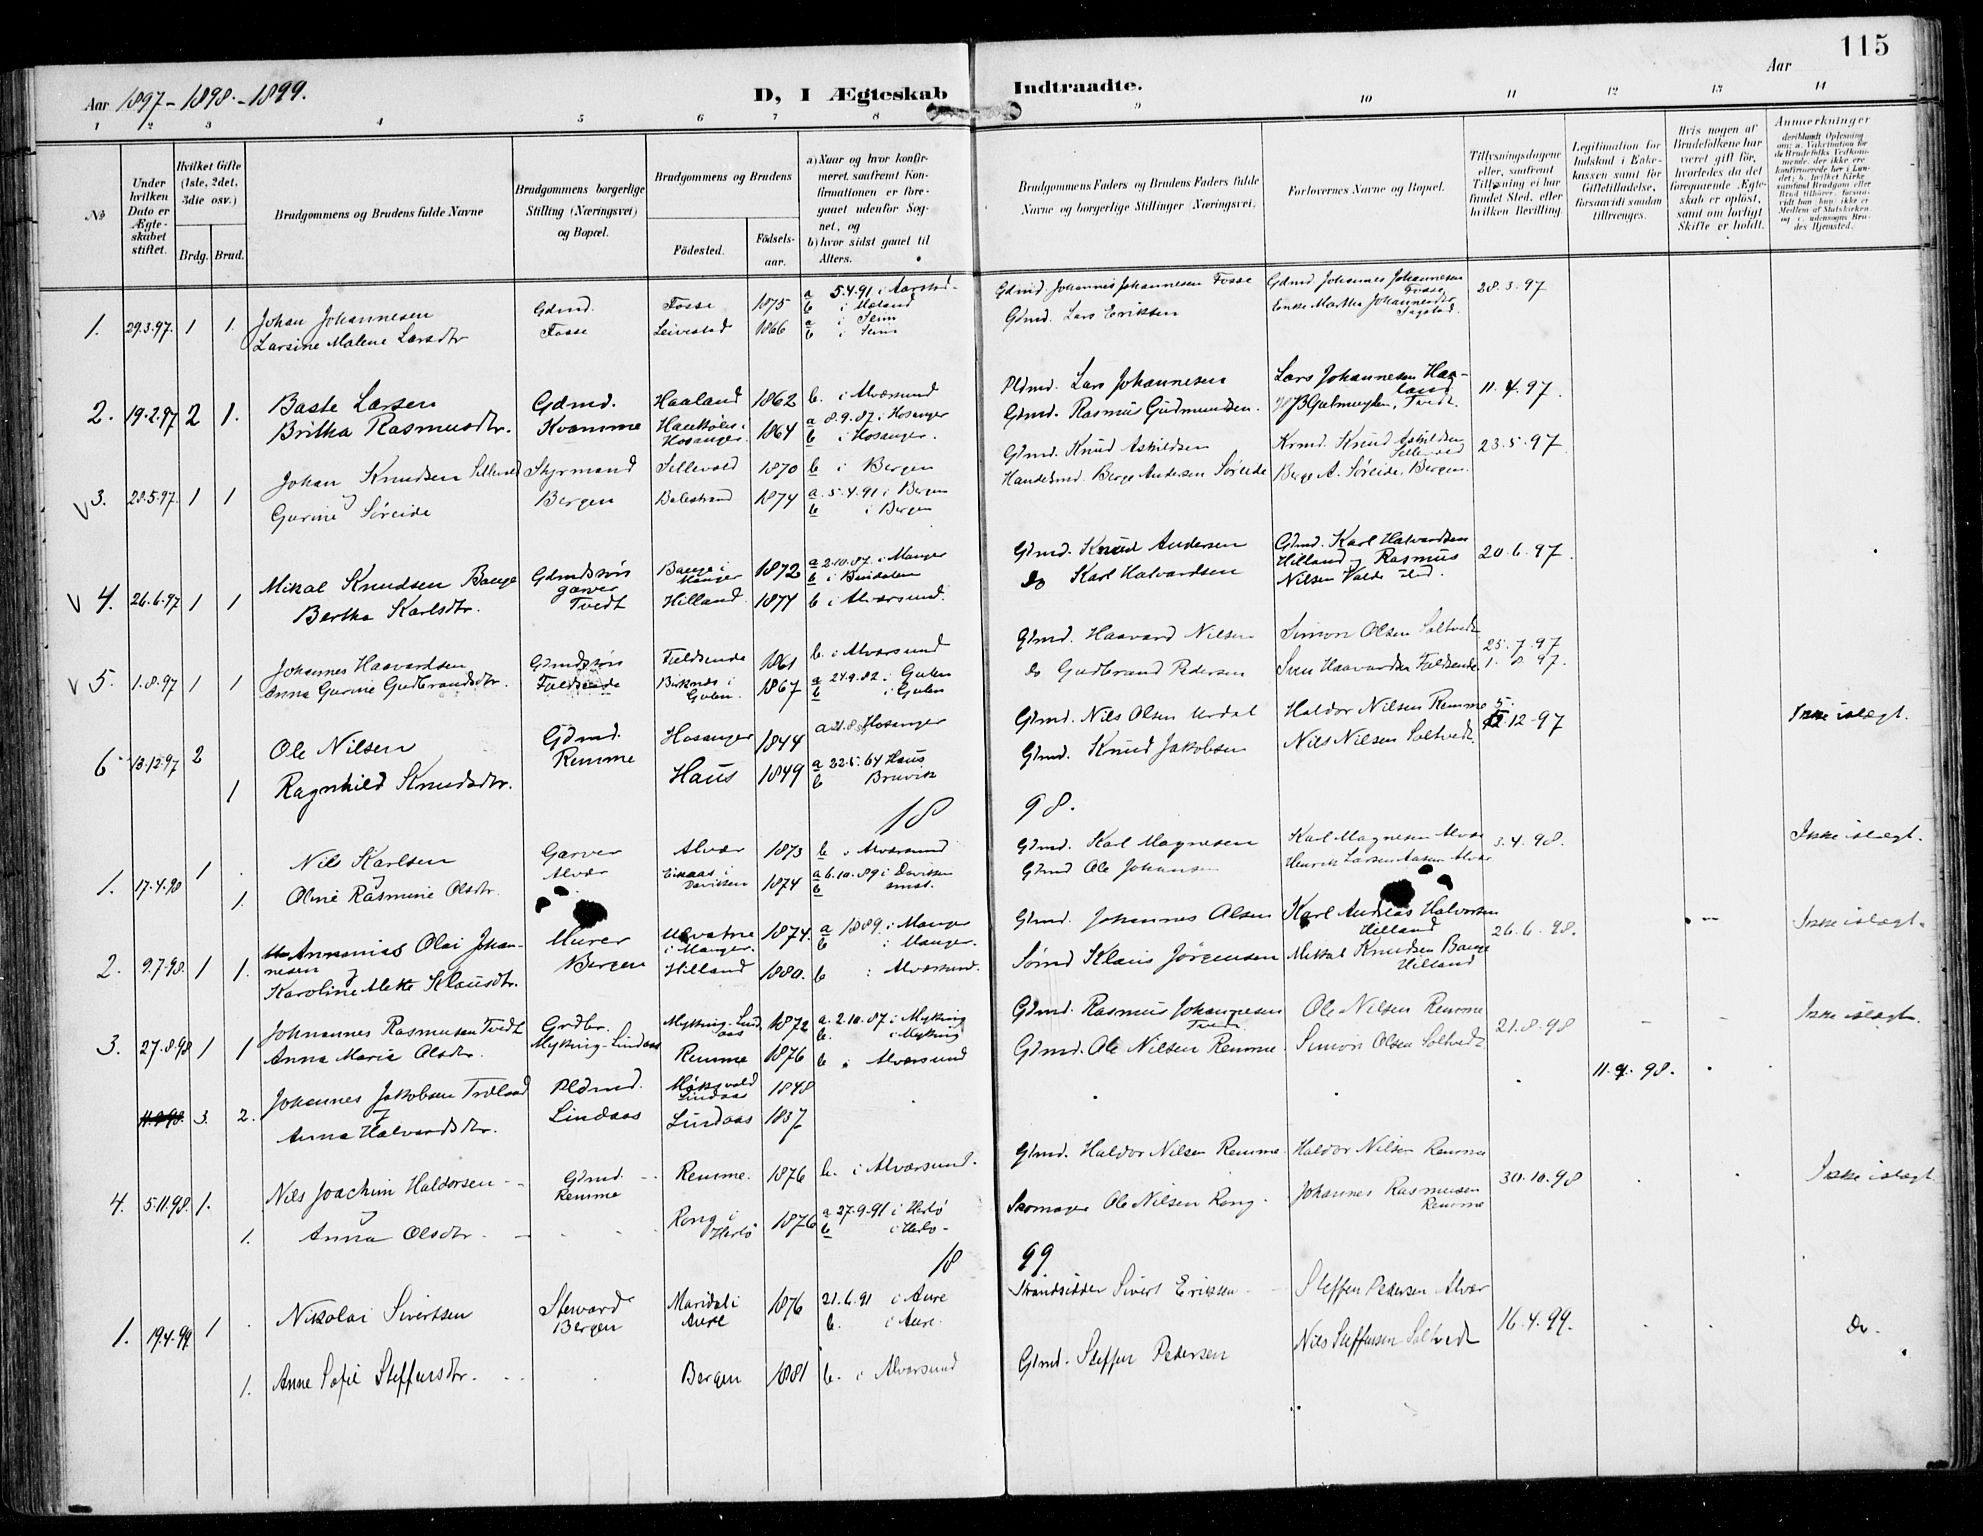 115
Aar 1897-1898-1899.
D, I Ægteskab Indtraadte.
Aar
1 2 3 4 5 6 7 8 9 10 11 12 13 14
№
Under hvilken Dato er Ægteskabet stiftet.
Hvilket Gifte (1ste, 2det, 3die osv.)
Brdg. Brud.
Brudgommens og Brudens fulde Navne
Brudgommens borgerlige Stilling (Næringsvei) og Bopæl.
Brudgommens og Brudens
Födested. Födselsaar.
a) Naar og hvor konfirmeret, saafremt Konfirmationen er foregaaet udenfor Sognet, og
b) hvor sidst gaaet til Alters.
Brudgommens Faders og Brudens Faders fulde Navne og borgerlige Stillinger (Næringsvei).
Forlovernes Navne og Bopæl.
Tillysningsdagene eller, saafremt Tillysning ei har fundet Sted, efter hvilken Bevilling
Legitimation for Indskud i Enkekassen samt for Giftetilladelse, forsaavidt saadan tiltrænges.
Hvis nogen af Brudefolkene har været gift før, hvorledes da det foregaaende Ægteskab er opløst, samt om lovligt Skifte er holdt.
Anmerkninger
1. 29.3.97. 1 1. Johan Johannesen Gdmd. Fosse 1875 a 5.4.91 i Aarstad b i Hæland Gdmd. Johannes Johannesen Fosse Gdmd Johannes Johannesen Fosse 28.3.97
Larsine Malene Larsdtr Fosse Leivestad 1866 a i Seim b i Seim Gdmd. Lars Eriksen Enke Martha Johannesdtr Fagstad.
2. 19.2.97 2 1. Baste Larsen Gdmd. Haaland 1862 b. i Alversund Pldmd. Lars Johannesen Lars Johannesen Haaland 11.4.97.
Britha Rasmusdtr. Kvamme Hosanger 1864 a 8.9.87. i Hosanger b i Hosanger. Gdmd. Rasmus Gudmundsen. Tvedt.
V 3. 28.5.97. 1 1 Johan Knudsen Sellevold Styrmand Sellevold 1870 b i Bergen Gdmd. Knud Askildsen Krmd. Knud Askildsen Sellevold 23.5.97
Gurine Søreide Bergen Balestrand 1874 a. 5.4.91 i Bergen b i Bergen Handelsmd. Berge Andersen Søreide Berge A. Søreide, Bergen.
V 4. 26.6.97 1 1 Mikal Knudsen Bauge Gdmdsøn garver Bauge i Manger 1872 a 2.10.87. i Manger b i Gdmd. Knud Andersen Gdmd. Karl Halvardsen Hilland, Rasmus 20.6.97.
Bertha Karlsdtr. Tvedt Hilland. 1877 b i Alversund. do Karl Halvardsen Nilsen
V 5. 1.8.97 1 1 Johannes Haavardsen Gdmdssøn Fieldsende 1861 b. i Alversund Gdmd. Haavard Nilsen Simon Olsen Soltvedt 25.7.97
Anna Gurine Gudbrandsdtr. Fieldsende Birknes i Gulen. 1867 a 24.9.82. i Gulen b i Gulen do Gudbrand Pedersen Sven Haavardsen Fieldsende 1.8.97.
6 13.12.97 2 Ole Nilsen Gdmd. Remme Hosanger 1844 a Hosanger Gdmd. Nils Olsen Urdal Haldor Nilsen Remme 5. 12.12.97 Ikke islægt.
1 Ragnhild Knudsdtr. Haus 1849 a 22.5.64 Haus b Bruvik Gdmd. Knud Jakobsen Nils Nilsen Soltvedt.
18 98.
1. 17.4.98 1. Nils Karlsen Garver Alvær 1873 b i Alversund Gdmd. Karl Magnesen Karl Magnesen Alvær 3.4.98. Ikke islægt.
1. Oline Rasmine Olsdtr. Alvær i Daviken 1874 a 6.10.89 i Daviken b Gdmd Ole Johansen Henrik Larsen Aasen Alvær
2. 9.7.98. 1 1. Annanias Olai Johannesen Murer i Manger. 1874. a 1889. i Manger b i Manger. Gdmd. Johannes Olsen Karl Andreas Halvorsen Hilland 26.6.98. Ikke islægt.
Karoline Mette Klausdtr. Bergen Hilland 1880. b i Alversund. Klaus Jørgensen Mikkal Knudsen Bauge Hilland
3. 27.8.98 1 1 Johannes Rasmusen Tvedt Grdbr. Mykting-Lindaas 1872 a. 2.10.87 i Mykting b. i Mykting Gdmd. Rasmus Johannesen Tvedt Ole Nilsen Remme 21.8.98 Ikke islægt.
Anna Maria Olsdtr. Mykting-Lindaas Remme 1876 b i Alversund Gdmd. Ole Nilsen Remme. Simon Olsen Soltvedt
11.9.98. 3. 2. Johannes Jakobsen Trælaad Pldmd. Lindaas 1848 11.9.98.
Anna Halvardsdtr. Lindaas Lindaas 1837
4. 5.11.98. 1. Nils Joachim Haldorsen Gdmd. Remme Remme. 1876 b. i Alversund. Gdmd. Haldor Nilsen Remme Haldor Nilsen Remme 30.10.98 Ikke islægt.
1. Anna Olsdtr. Rong i Herlø 1876 a 27-9-91 i Herlø b i Herlø Skomager Ole Nilsen Rong. Johannes Rasmusen Remme
18 99
1. 19.4.99 1 Nikolai Sivertsen Steward Bergen Maridal i Aure 1876 21.6.91 i Aure b. i Aure. Strandsidder Sivert Eriksen Steffen Pedersen Alvær 16.4.99. Do.
1. Anne Sofie Steffensdtr. Bergen 1881 b. i Alversund Gdmd. Steffen Pedersen Nils Steffensen Soltvedt